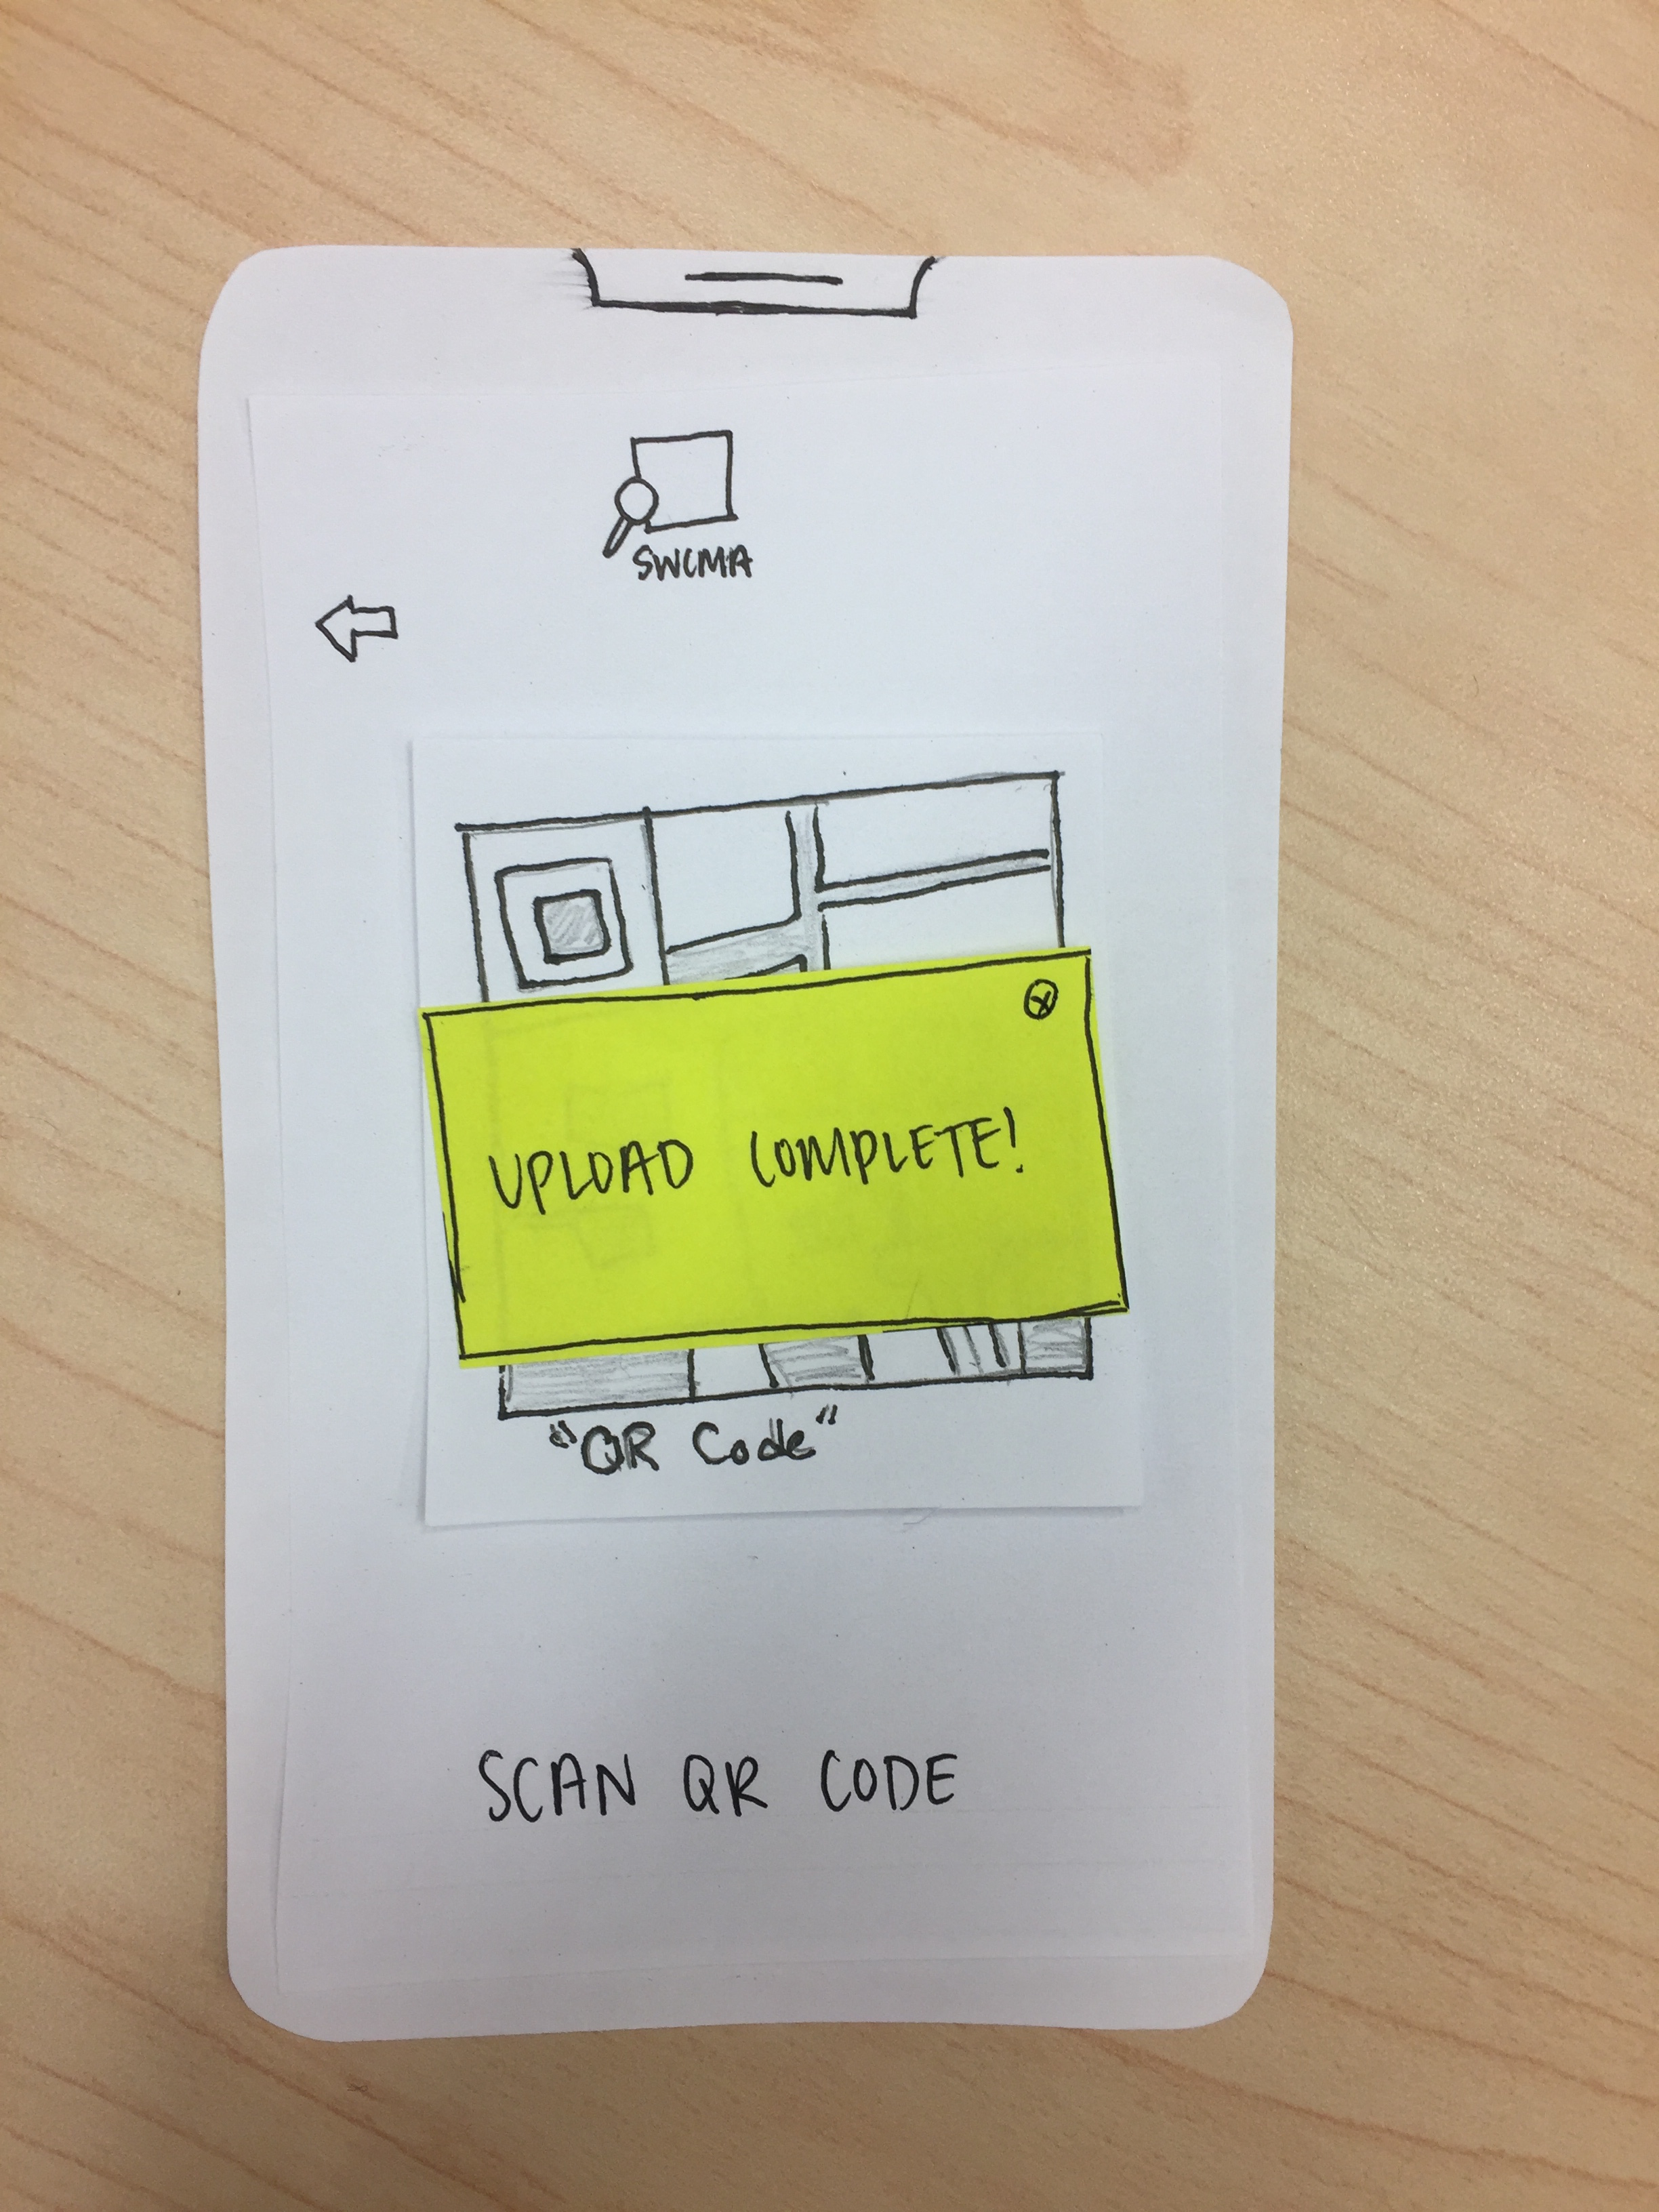 SWCMA
UPLOAD COMPLETE!
"QR Code"
SCAN QR CODE